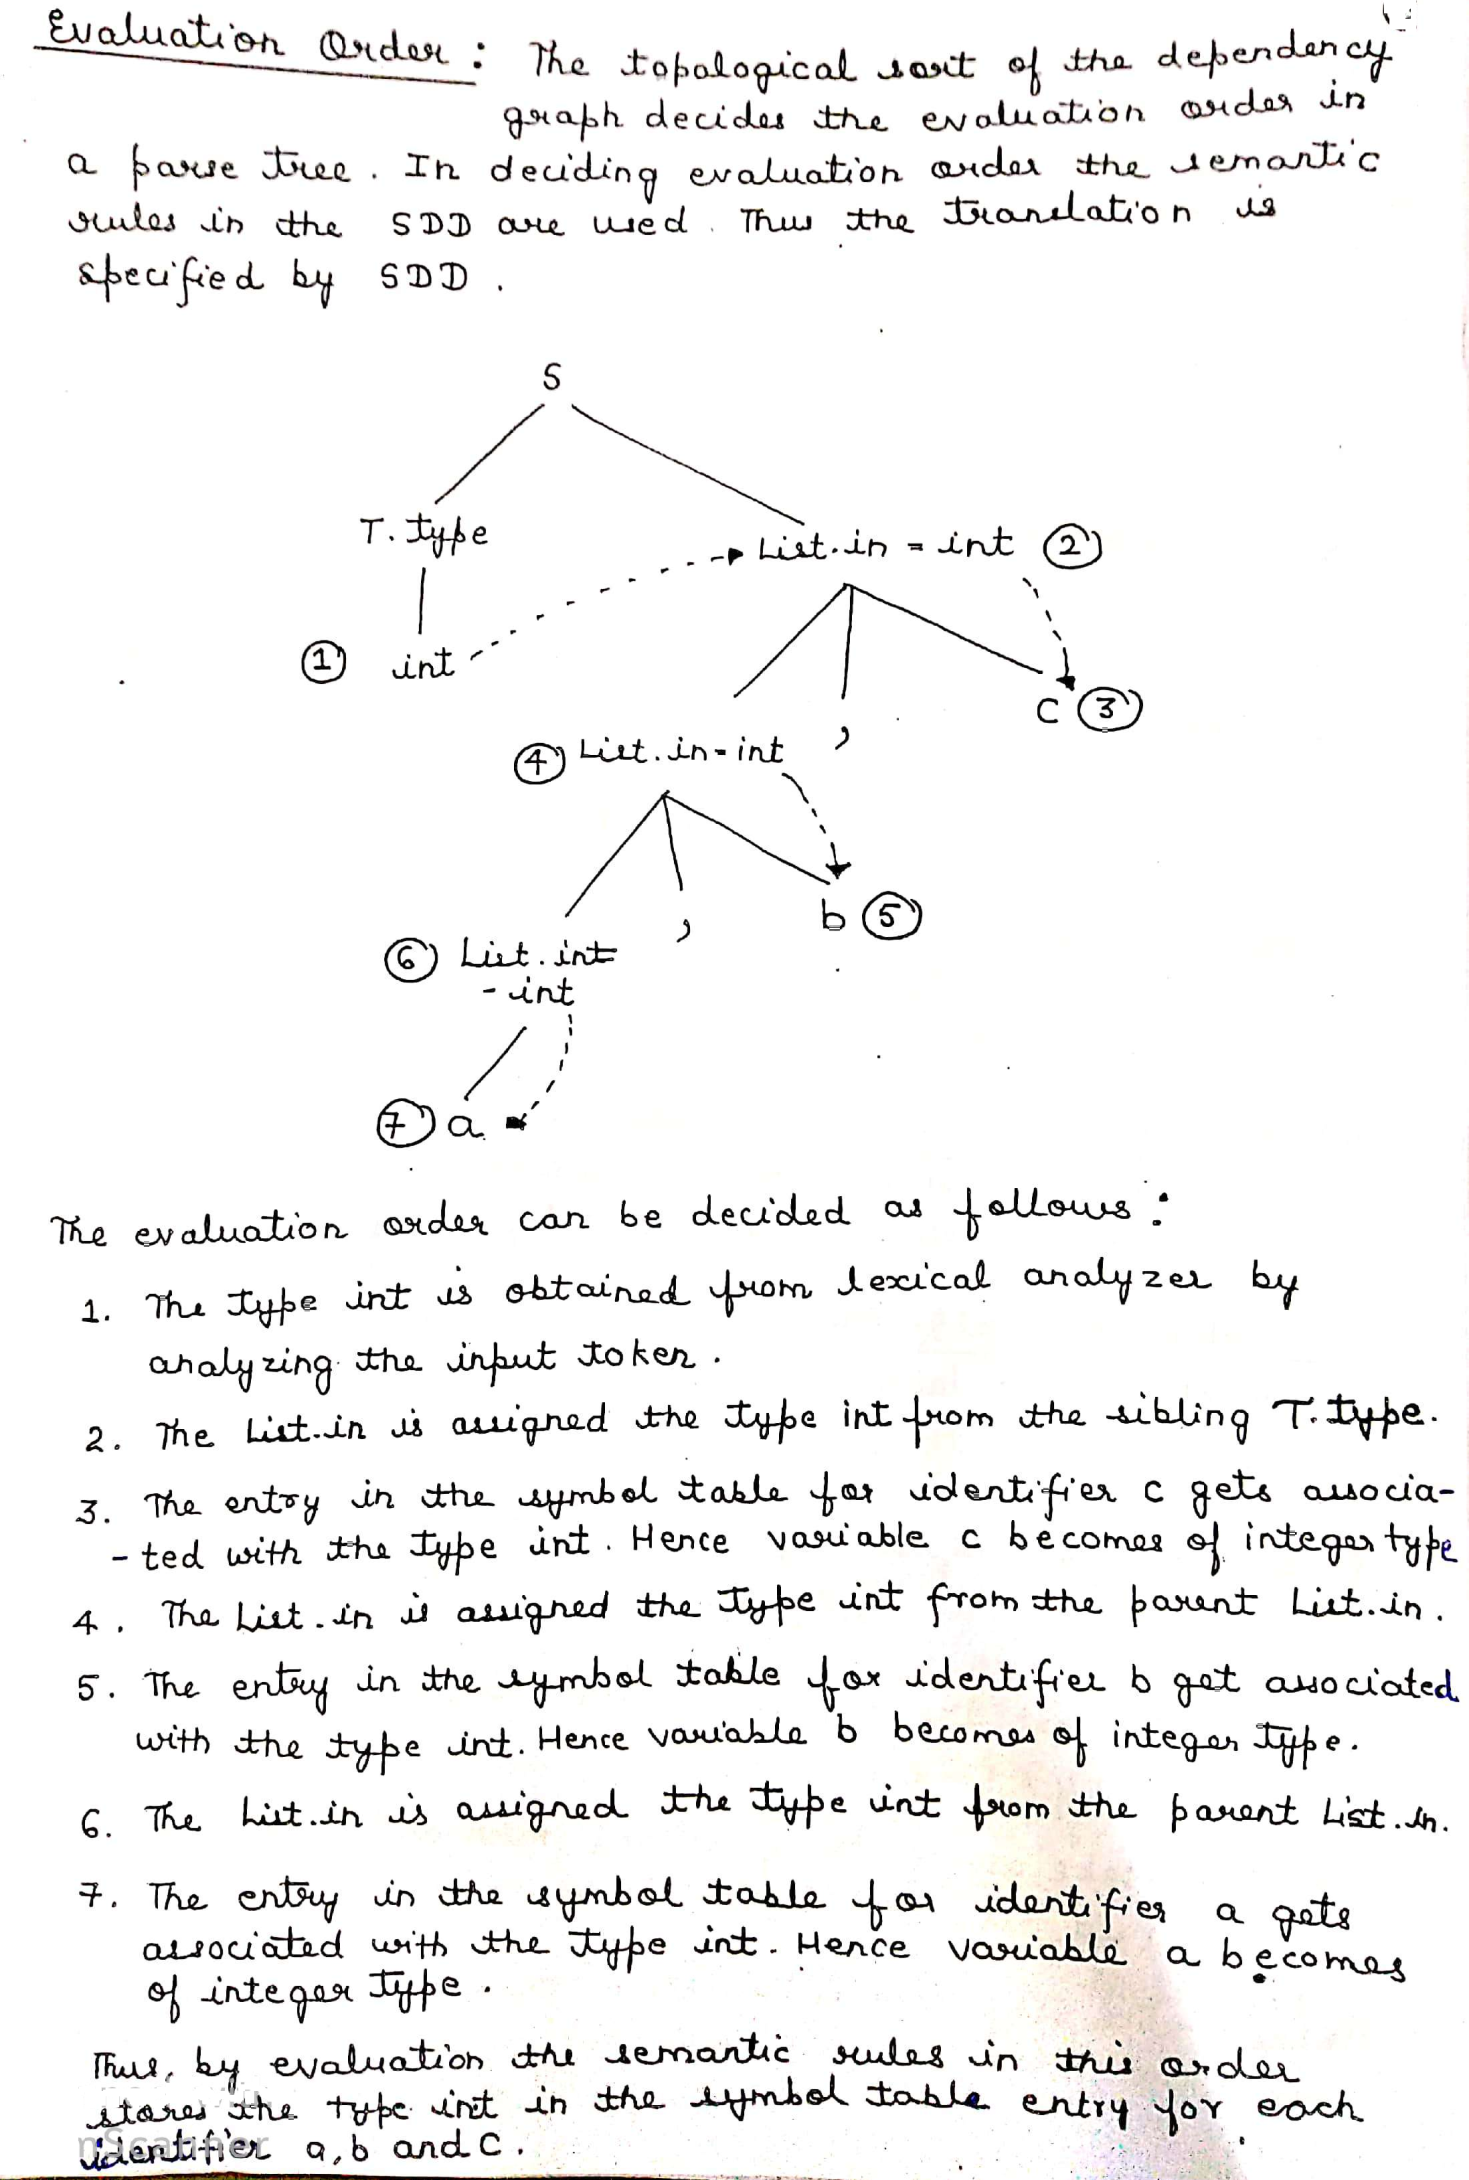 Evaluation Order : The topological sort of the dependency
graph decides the evaluation order in
a parse tree. In deciding evaluation order the semantic
rules in the SDD are used. Thus the translation is
specified by SDD.
S
T. type
List.in = int 2
1 int
C 3
4 List.in = int ,
b 5
6 List.int ,
- int
7 a
The evaluation order can be decided as follows :
1. The type int is obtained from lexical analyzer by
analyzing the input token.
2. The List.in is assigned the type int from the sibling T.type.
3. The entry in the symbol table for identifier c gets associa-
- ted with the type int. Hence variable c becomes of integer type
4. The List.in is assigned the type int from the parent List.in.
5. The entry in the symbol table for identifier b get associated
with the type int. Hence variable b becomes of integer type.
6. The List.in is assigned the type int from the parent List.in.
7. The entry in the symbol table for identifier a gets
associated with the type int. Hence variable a becomes
of integer type.
Thus, by evaluation the semantic rules in this order
stores the type int in the symbol table entry for each
identifier a, b and c.